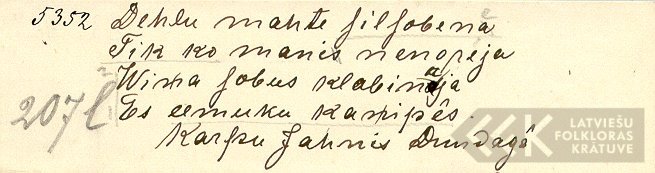 5352 Dehlu mahte silsobena
Tik ko manis nenoreja
Wina sobus klabinaja
207l Es eemuku kampês.
Karsku Jahnis Dundagâ
LATVIEŠU
FOLKLORAS
KRĀTUVE